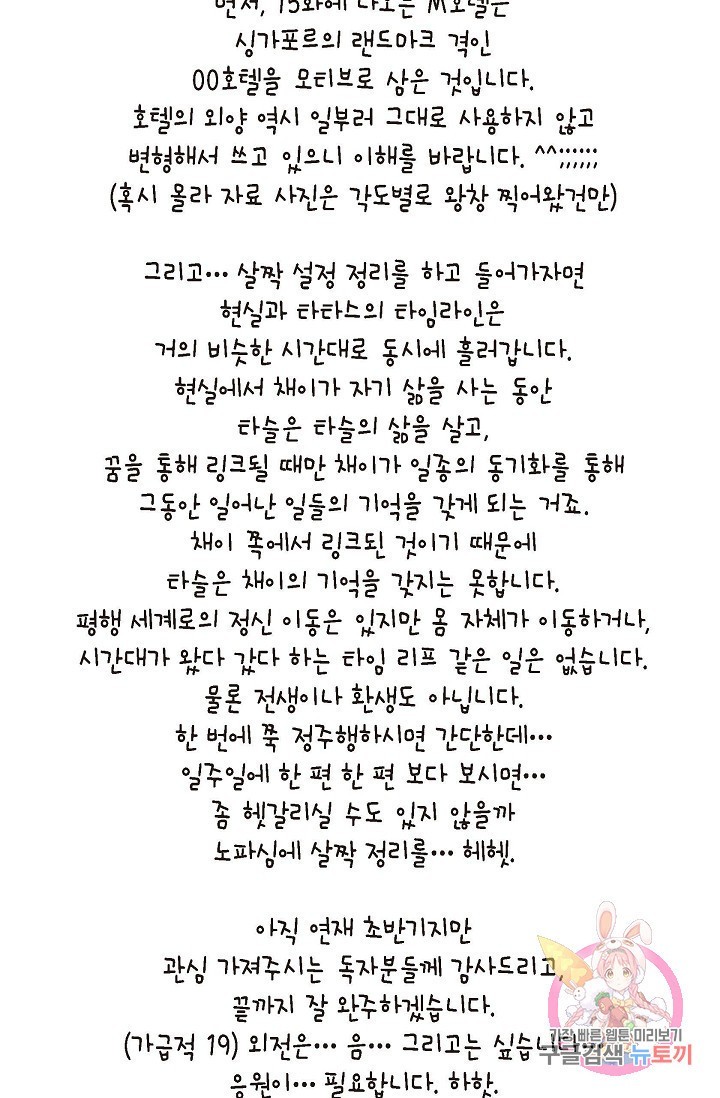 먼저, 15화에 나오는 M호텔은
싱가포르의 랜드마크 격인
00호텔을 모티브로 삼은 것입니다.
호텔의 외양 역시 일부러 그대로 사용하지 않고
변형해서 쓰고 있으니 이해를 바랍니다. ^^;;;;;;
(혹시 몰라 자료 사진은 각도별로 왕창 찍어왔건만)
그리고… 살짝 설정 정리를 하고 들어가자면
현실과 타타스의 타임라인은
거의 비슷한 시간대로 동시에 흘러갑니다.
현실에서 채이가 자기 삶을 사는 동안
타슬은 타슬의 삶을 살고,
꿈을 통해 링크될 때만 채이가 일종의 동기화를 통해
그동안 일어난 일들의 기억을 갖게 되는 거죠.
채이 쪽에서 링크된 것이기 때문에
타슬은 채이의 기억을 갖지는 못합니다.
평행 세계로의 정신 이동은 있지만 몸 자체가 이동하거나,
시간대가 왔다 갔다 하는 타임 리프 같은 일은 없습니다.
물론 전생이나 환생도 아닙니다.
한 번에 쭉 정주행하시면 간단한데…
일주일에 한 편 한 편 보다 보시면…
좀 헷갈리실 수도 있지 않을까
노파심에 살짝 정리를… 헤헷.
아직 연재 초반기지만
관심 가져주시는 독자분들께 감사드리고,
끝까지 잘 완주하겠습니다.
(가급적 19) 외전은… 음… 그리고는 싶습니다
응원이… 필요합니다. 하핫.
가장 빠른 웹툰 미리보기
구글검색 뉴토끼